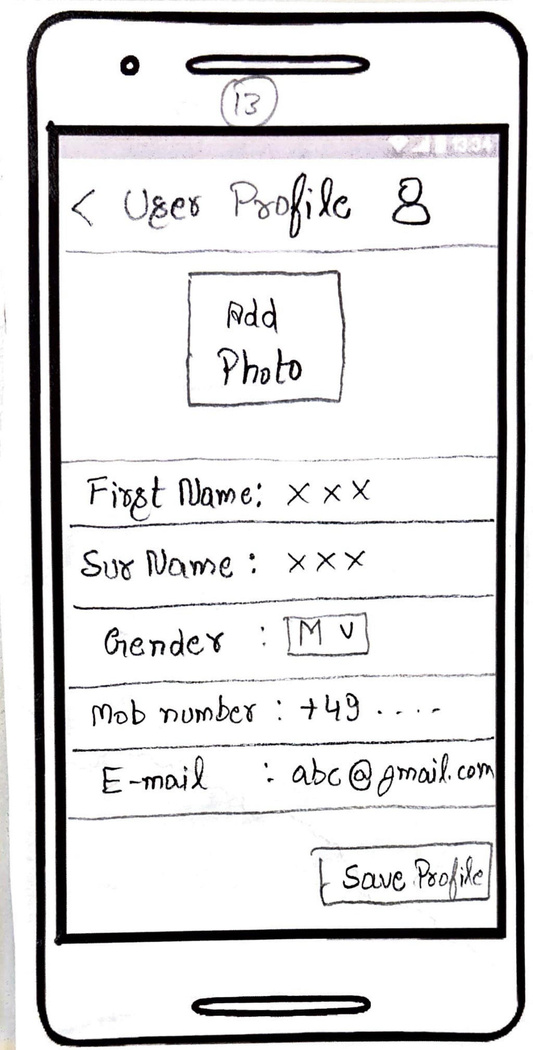 13
< User Profile
Add
Photo
First Name: X X X
Sur Name : X X X
Gender : M v
Mob number : +49 ....
E-mail : abc@gmail.com
Save Profile